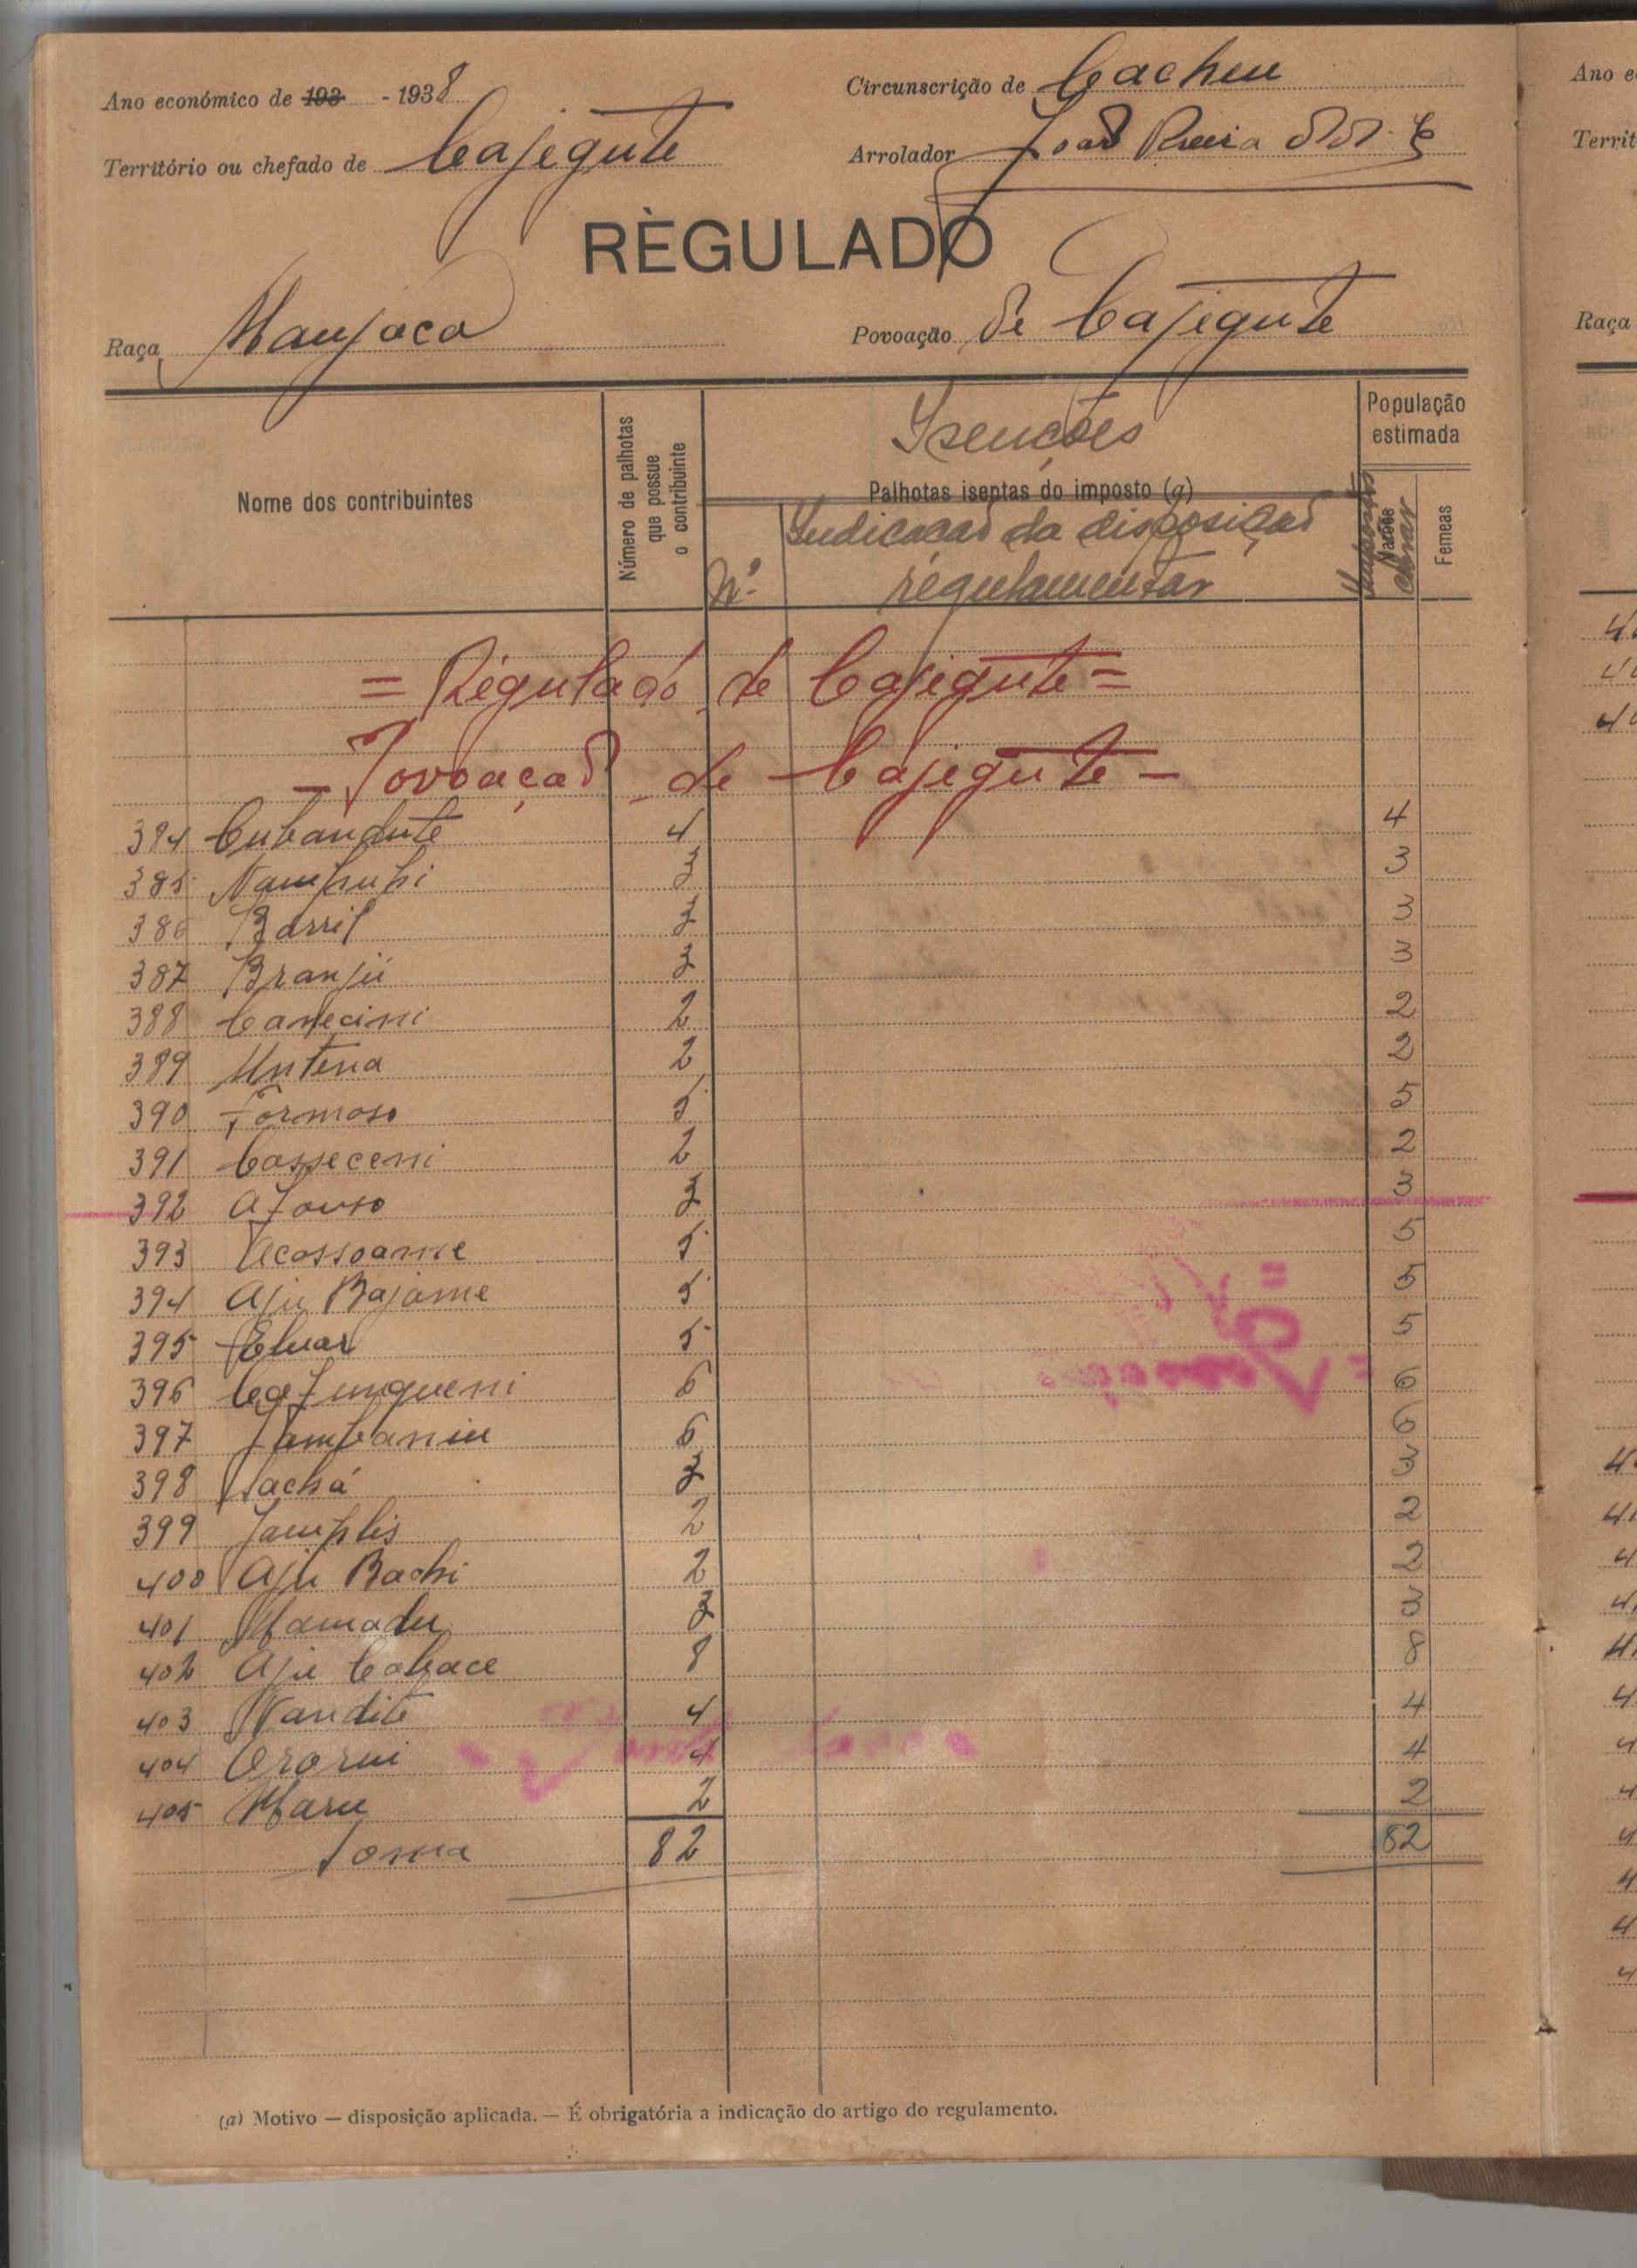 Ano económico de 193 - 1938
Circunscrição de Cacheu
Território ou chefado de Cajegute
Arrolador João
RÈGULADO
Raça Manjaca
Povoação de Cajegute
Nome dos contribuintes
Número de palhotas que possue o contribuinte
Isenções
Palhotas iseptas do imposto (a)
Nº
Indicacão da disposição
regulamentar
População estimada
Varões
Femeas
= Régulado de Cajegute =
- Povoação de Cajegute -
384 Cubandute 4 4
385 Nampupi 3 3
386 Barril 3 3
387 Branjú 3 3
388 Canecimi 2 2
389 Untena 2 2
390 Formoso 5 5
391 Casseceni 2 2
392 Afonso 3 3
393 Acossoame 5 5
394 Aju Bajame 5 5
395 5 5
396 6 6
397 6 6
398 3 3
399 Jamplis 2 2
400 Aju Bachi 2 2
401 Mamadu 3 3
402 Aju 8 8
403 Nandite 4 4
404 4 4
405 Maru 2 2
Soma 82 82
(a) Motivo — disposição aplicada. — É obrigatória a indicação do artigo do regulamento.
Ano e
Territ
Raça